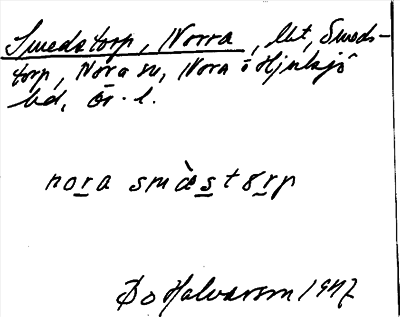 Smedstorp, Norra, lht, Smeds-
torp, Nora sn, Nora o Hjulsjö
bd, Ör. l.
nora smæ̀stɞrp
Bo Halvarson 1947